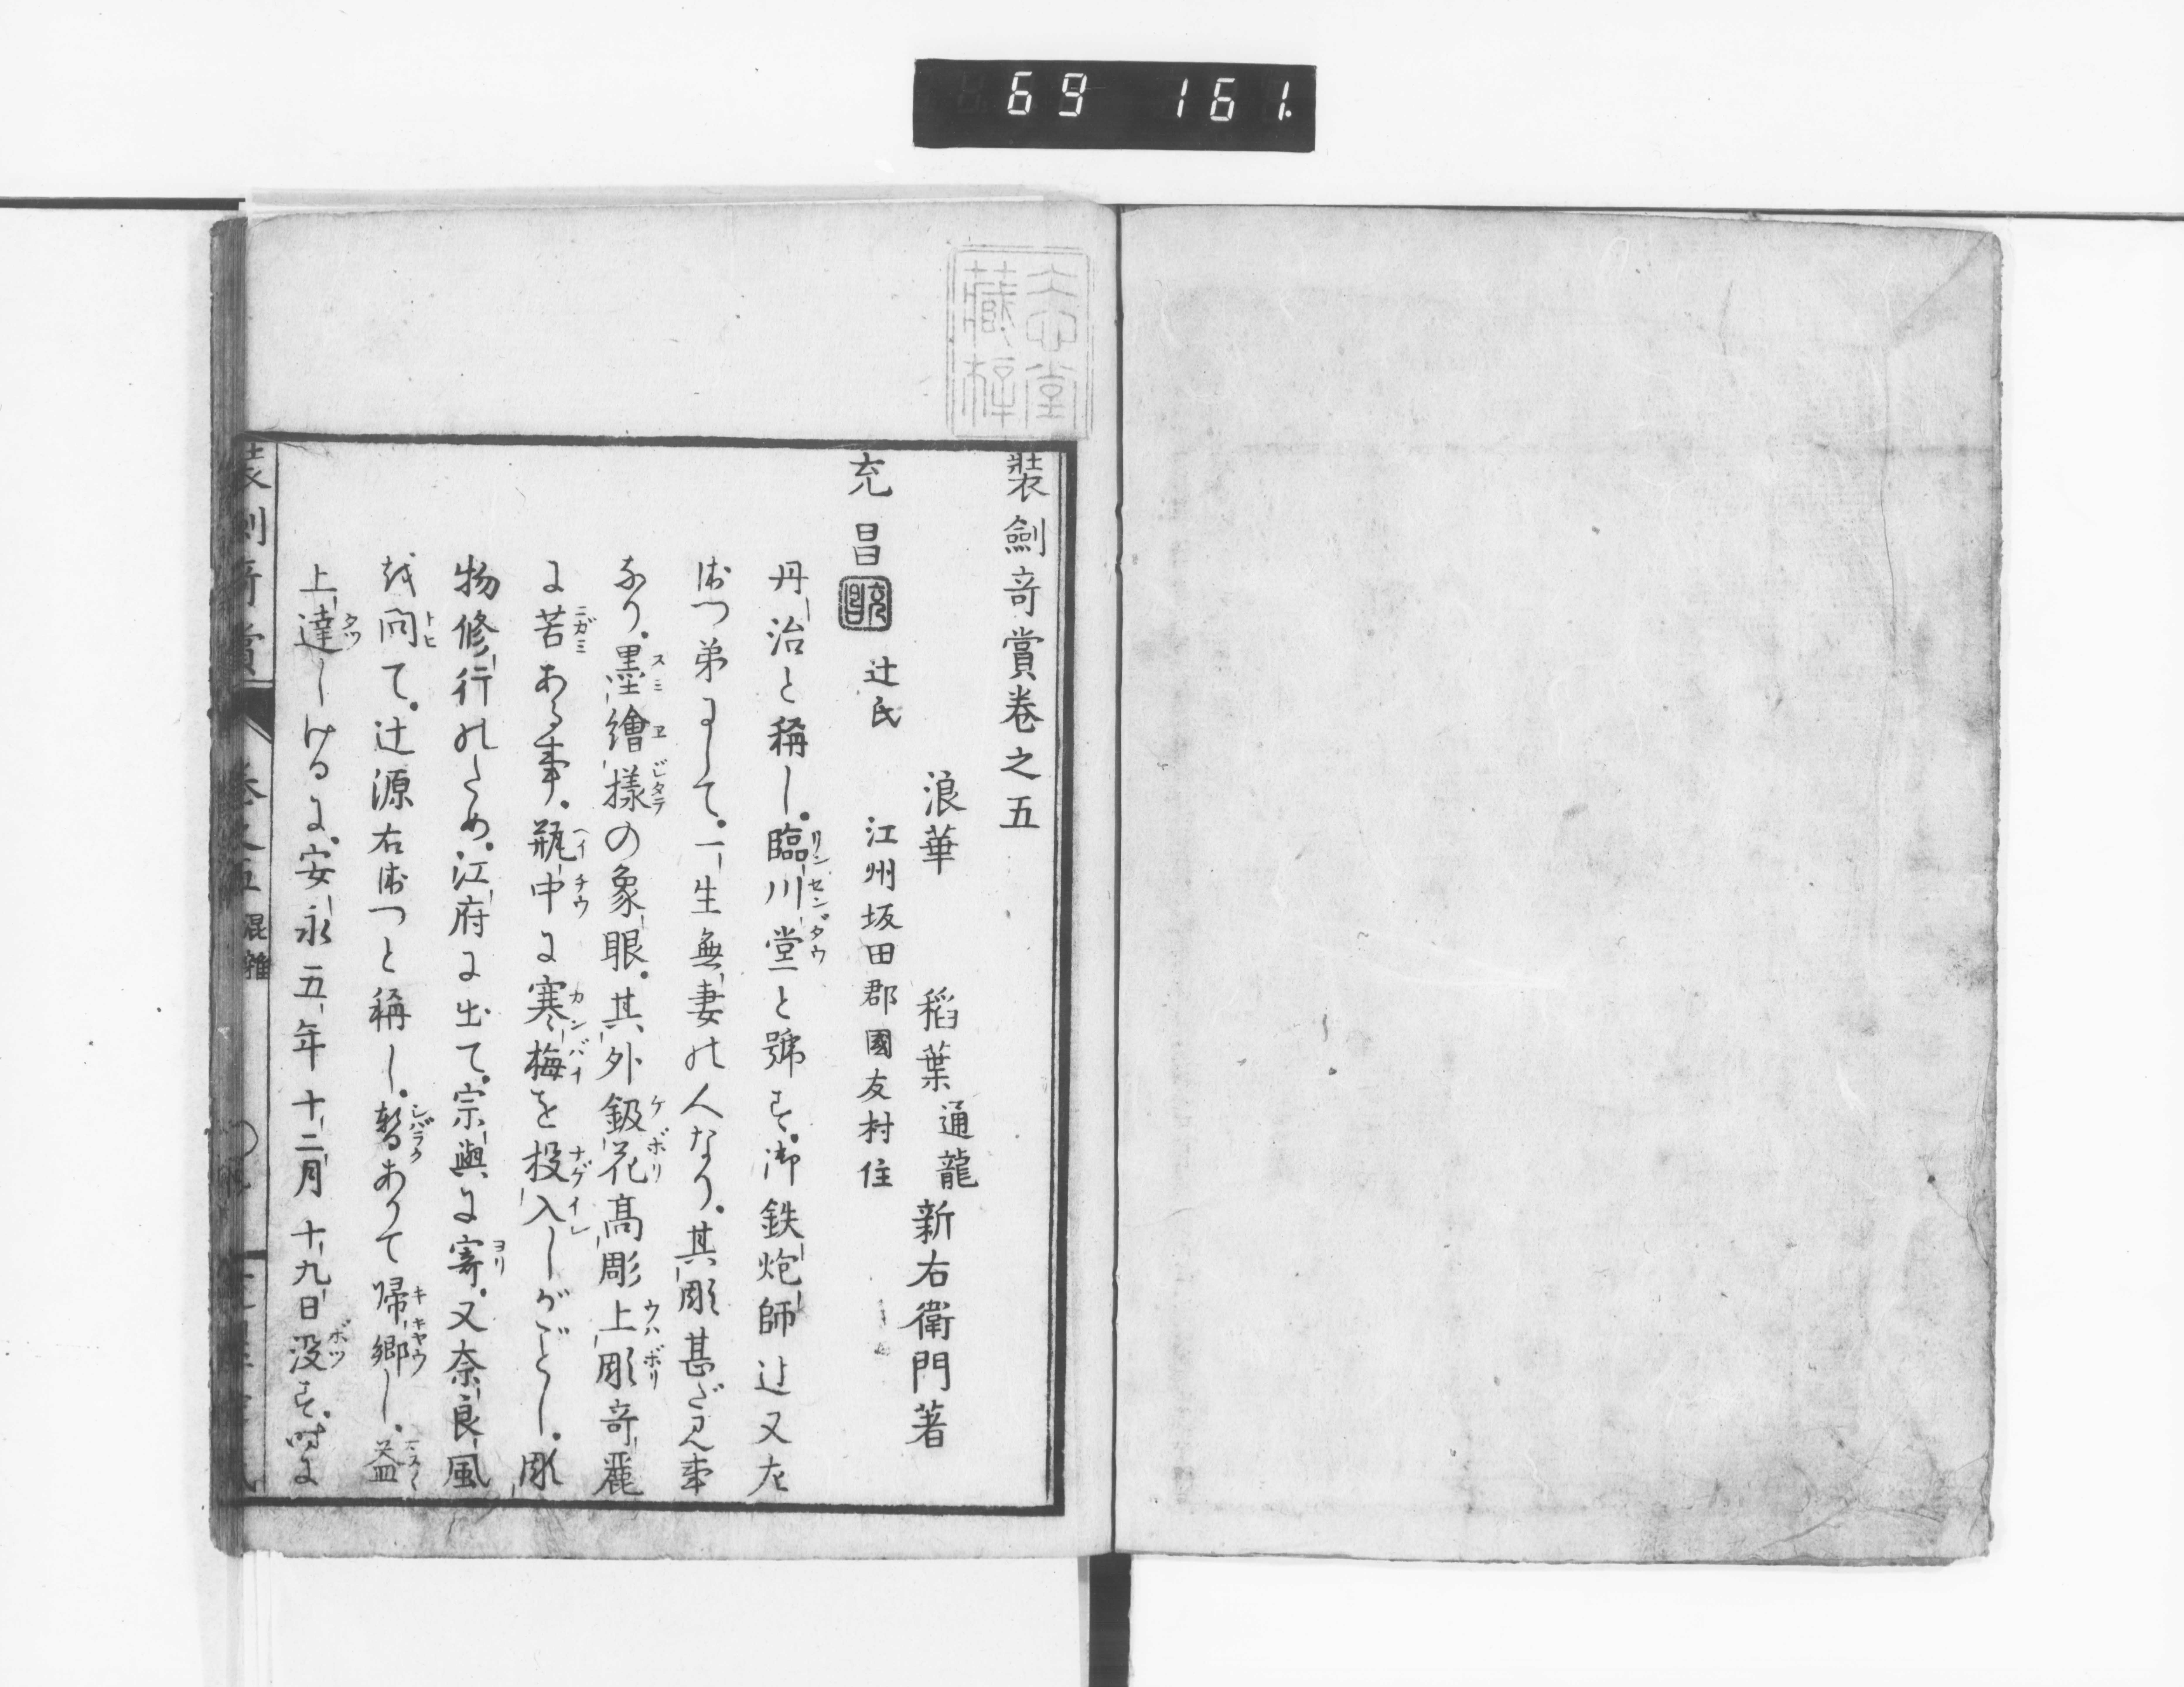 69 161.
志堂
藏梓
裝劍竒賞卷之五
浪華 稻葉通龍新右衛門著
充昌 辻氏 江州坂田郡國友村住
丹治と稱し。臨川堂と號す。御鉄炮師辻又左
衛门弟にして。一生無妻の人なり。其彫甚だ見事
なり。墨繪様の象眼。其外鈒花高彫上彫竒麗
に苦ある事。瓶中に寒梅を投入しがごとし。彫
物修行のため。江府に出て。宗與に寄。又奈良風
を問て。辻源右衛门と稱し。暫ありて帰郷し。益
上達しけるに。安永五年十二月十九日没す。時に
裝劍竒賞 卷之五 混雜